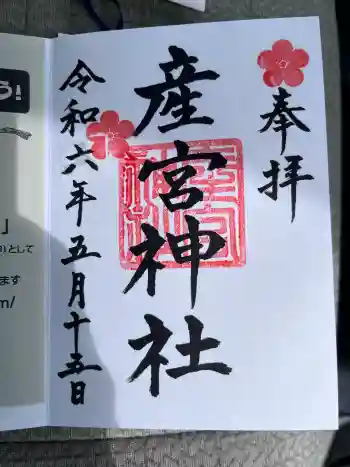 奉拝
産宮神社
令和六年五月十五日
う!
」
)として
ます
m/